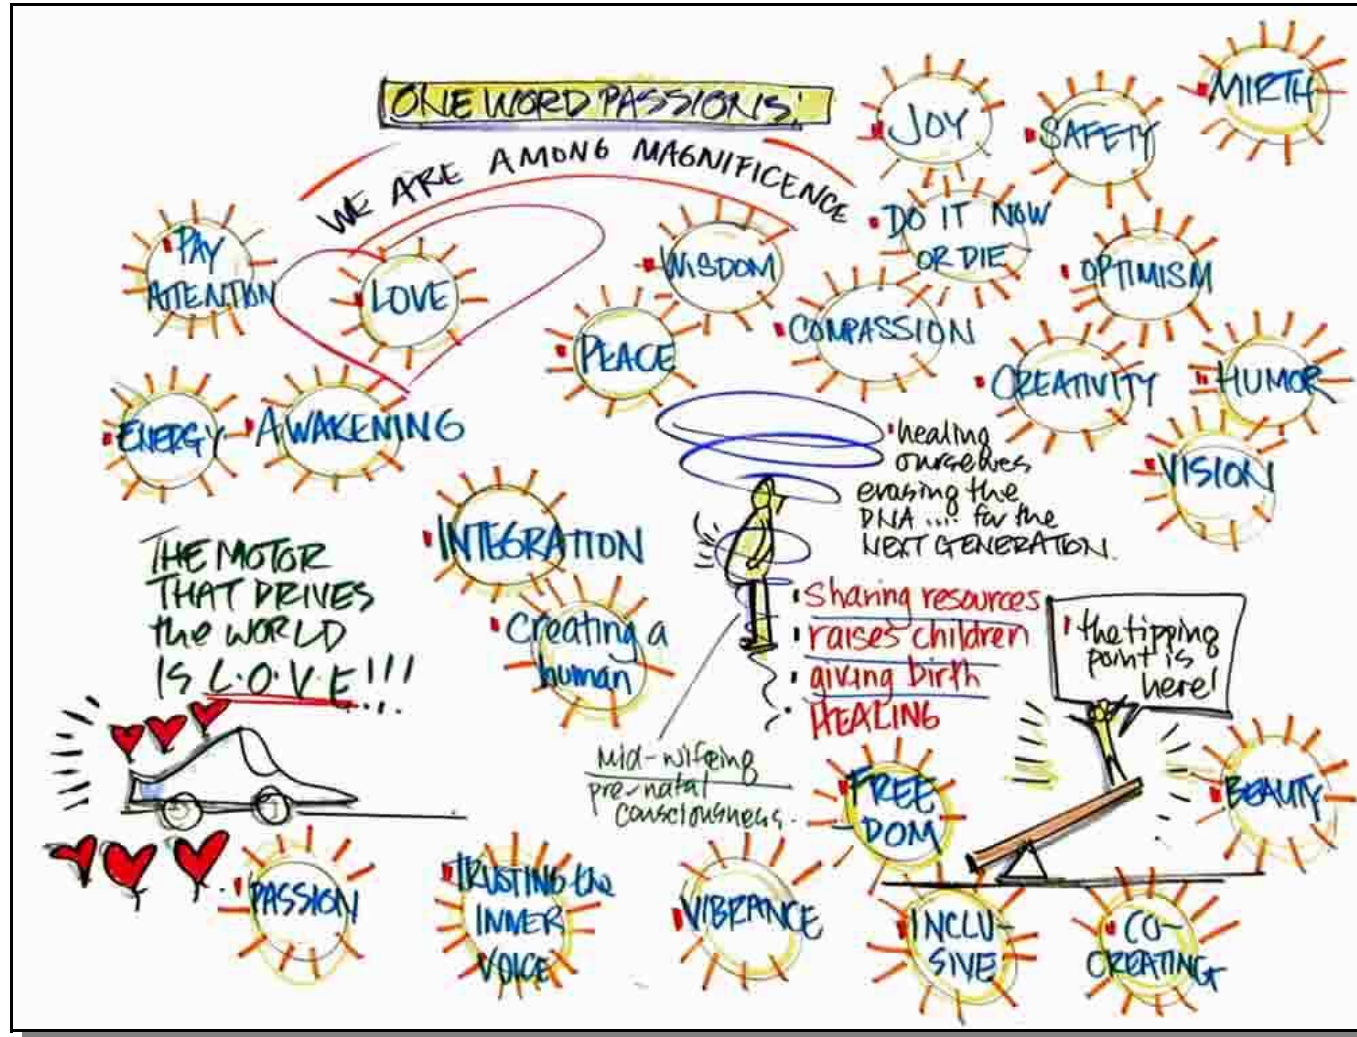 ONE WORD PASSIONS:
WE ARE AMONG MAGNIFICENCE
JOY
SAFETY
MIRTH
PAY
ATTENTION
LOVE
WISDOM
DO IT NOW
OR DIE
OPTIMISM
PEACE
COMPASSION
CREATIVITY
HUMOR
ENERGY
AWAKENING
VISION
healing
ourselves
erasing the
DNA .... for the
NEXT GENERATION.
INTEGRATION
Creating a
human
THE MOTOR
THAT DRIVES
the WORLD
IS L.O.V.E!!!
sharing resources
raises children
giving birth
HEALING
the tipping
point is
here!
Mid-wifeing
pre-natal
consciousness.
FREE
DOM
BEAUTY
PASSION
TRUSTING the
INNER
VOICE
VIBRANCE
INCLU-
SIVE
CO-
CREATING